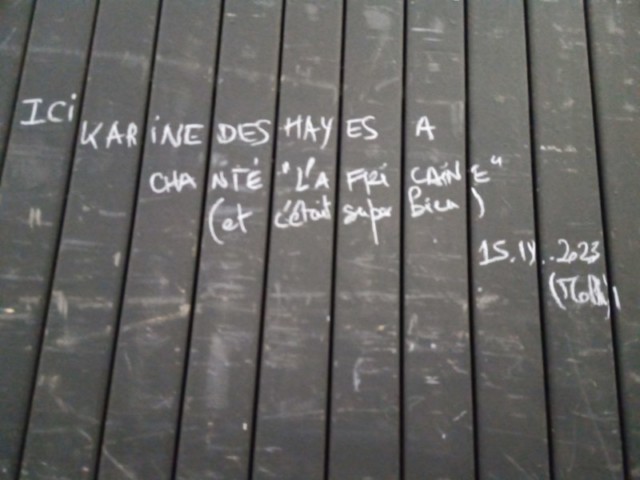 ICI KARINE DESHAYES A
CHANTÉ "L'AFRICAINE"
(et c'était super bien)
2023